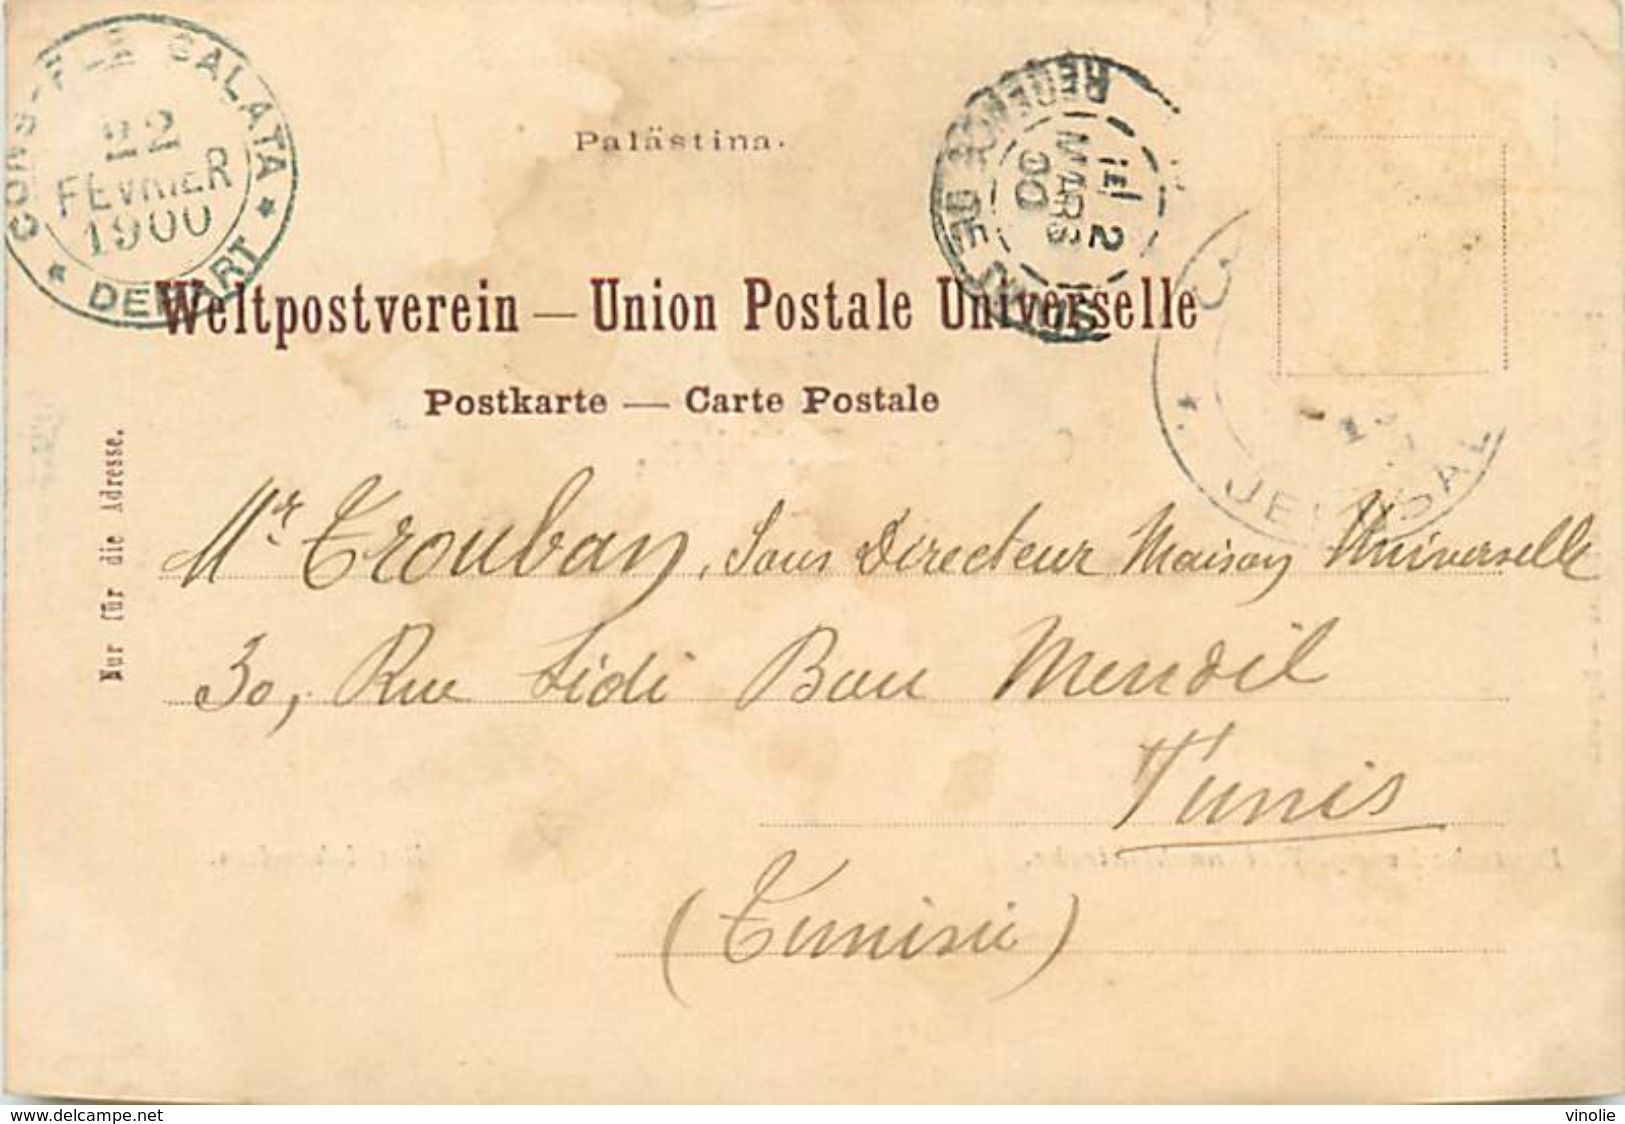 GALATA
22
FÉVRIER
1900
DEPART
Palästina.
2
MARS
00
Weltpostverein — Union Postale Universelle
Postkarte — Carte Postale
Nur für die Adresse.
Mr Trouban, Sous Directeur Maison Universelle
30, Rue Sidi Bou Mendil
Tunis
(Tunisie)
www.delcampe.net
vinolie